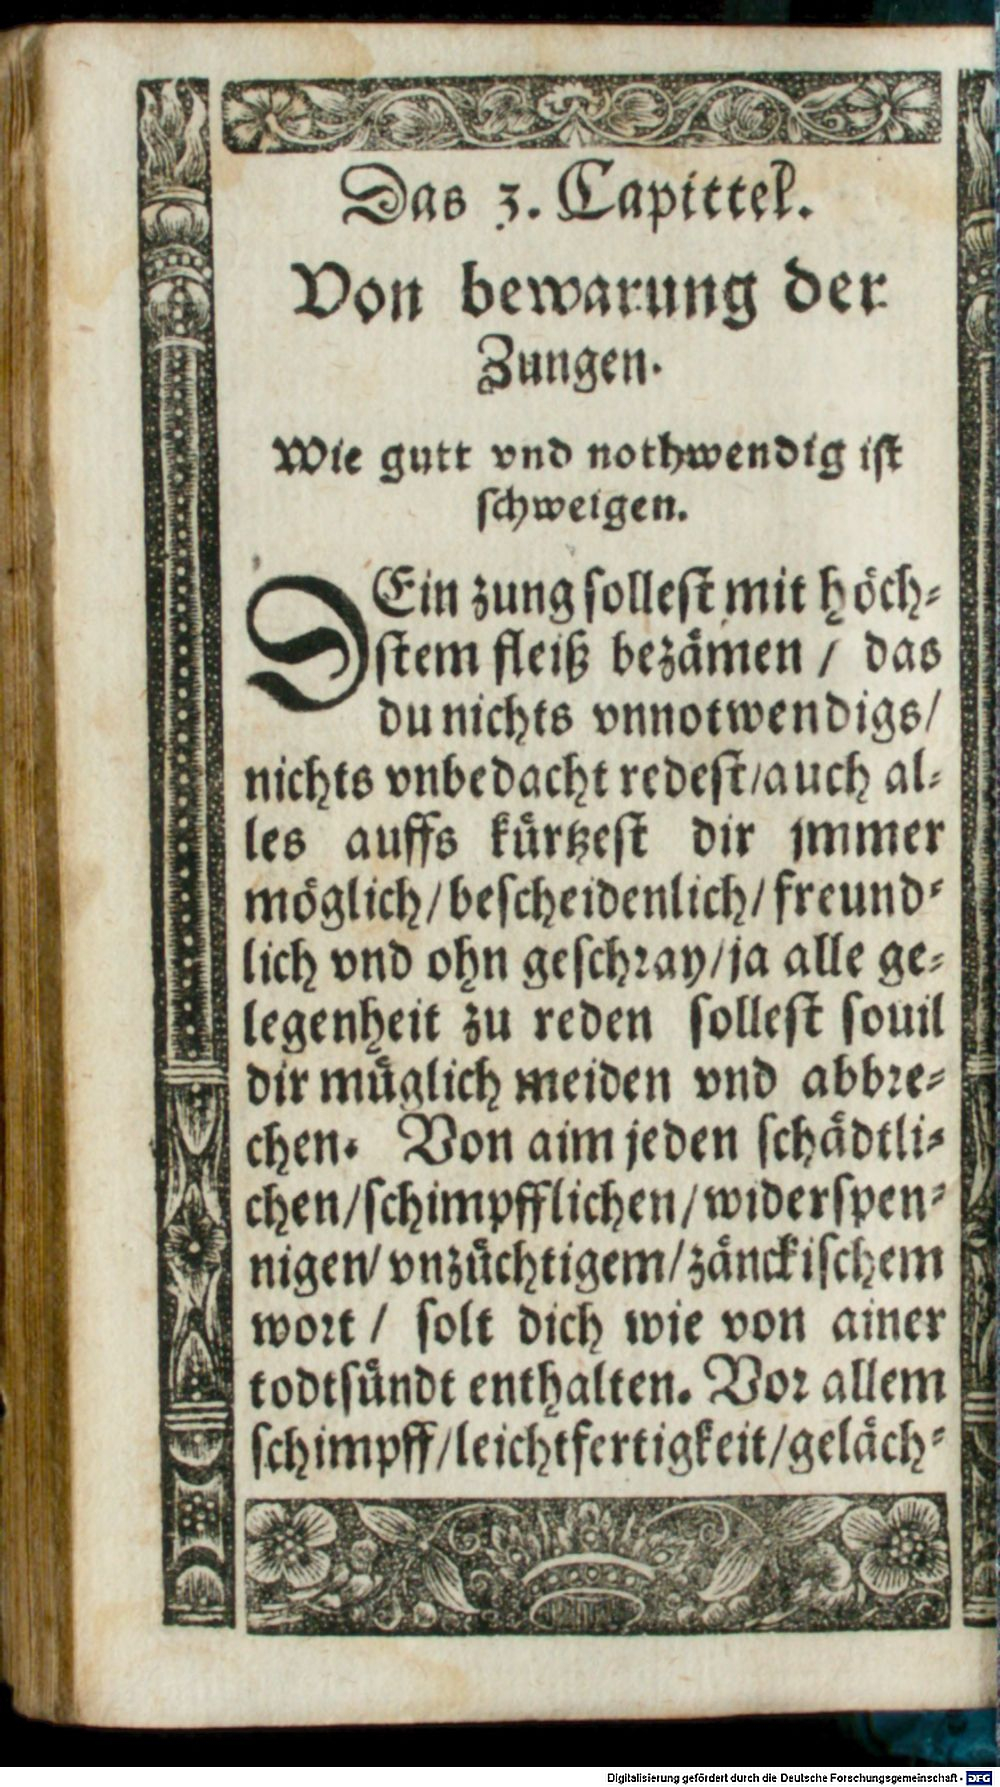 Das 3. Capittel.
Von bewarung der
Zungen.
Wie gutt vnd nothwendig ist
schweigen.
DEin zung sollest mit höch-
stem fleiß bezämen / das
du nichts vnnotwendigs/
nichts vnbedacht redest/auch al-
les auffs kürtzest dir jmmer
möglich/bescheidenlich/freund-
lich vnd ohn geschray/ja alle ge-
legenheit zu reden sollest souil
dir müglich meiden vnd abbre-
chen. Von aim jeden schädtli-
chen/schimpfflichen/widerspen-
nigen/vnzüchtigem/zänckischem
wort / solt dich wie von ainer
todtsündt enthalten. Vor allem
schimpff/leichtfertigkeit/geläch-
Digitalisierung gefördert durch die Deutsche Forschungsgemeinschaft - DFG